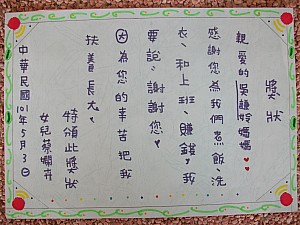 獎狀
親愛的吳謹姈媽媽
感謝您為我們煮飯、洗
衣、和上班、賺錢，我
要說：謝謝您
因為您的辛苦把我
扶養長大。
特頒此獎狀
女兒蔡嫻卉
中華民國101年5月3日